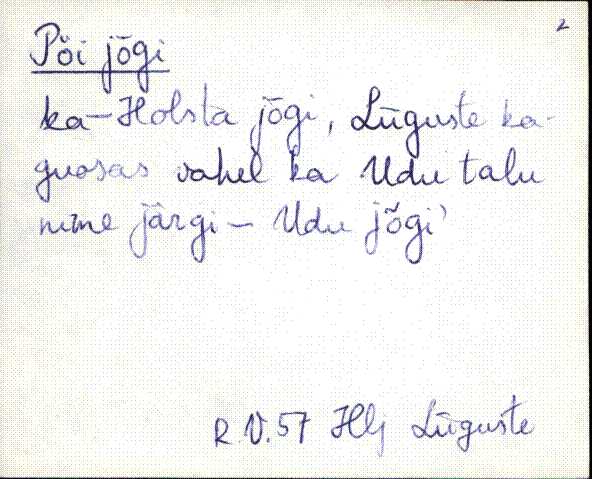 2
Pöi jõgi
ka-Holsta jõgi, Lüguste ka-
guosas vahel ka Udu talu
nime järgi - Udu jõgi
R. V. 57 Hlj Lüguste